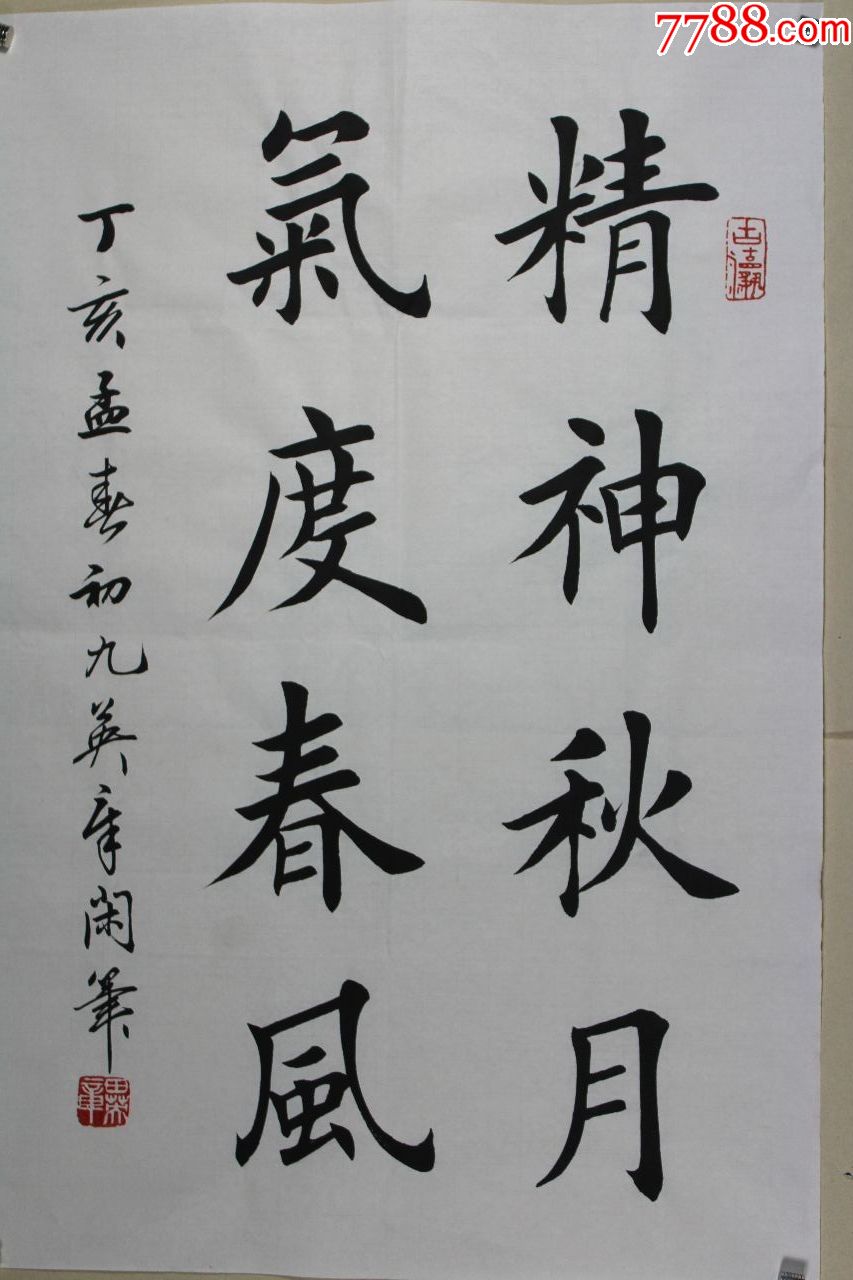 7788.com
精神秋月
氣度春風
丁亥孟春初九英章闲筆